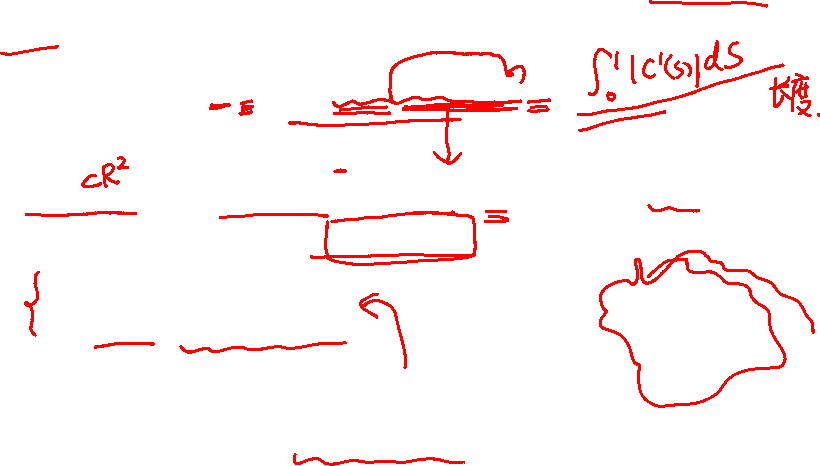 ∫₀¹|C'(s)|ds
长度.
CR²